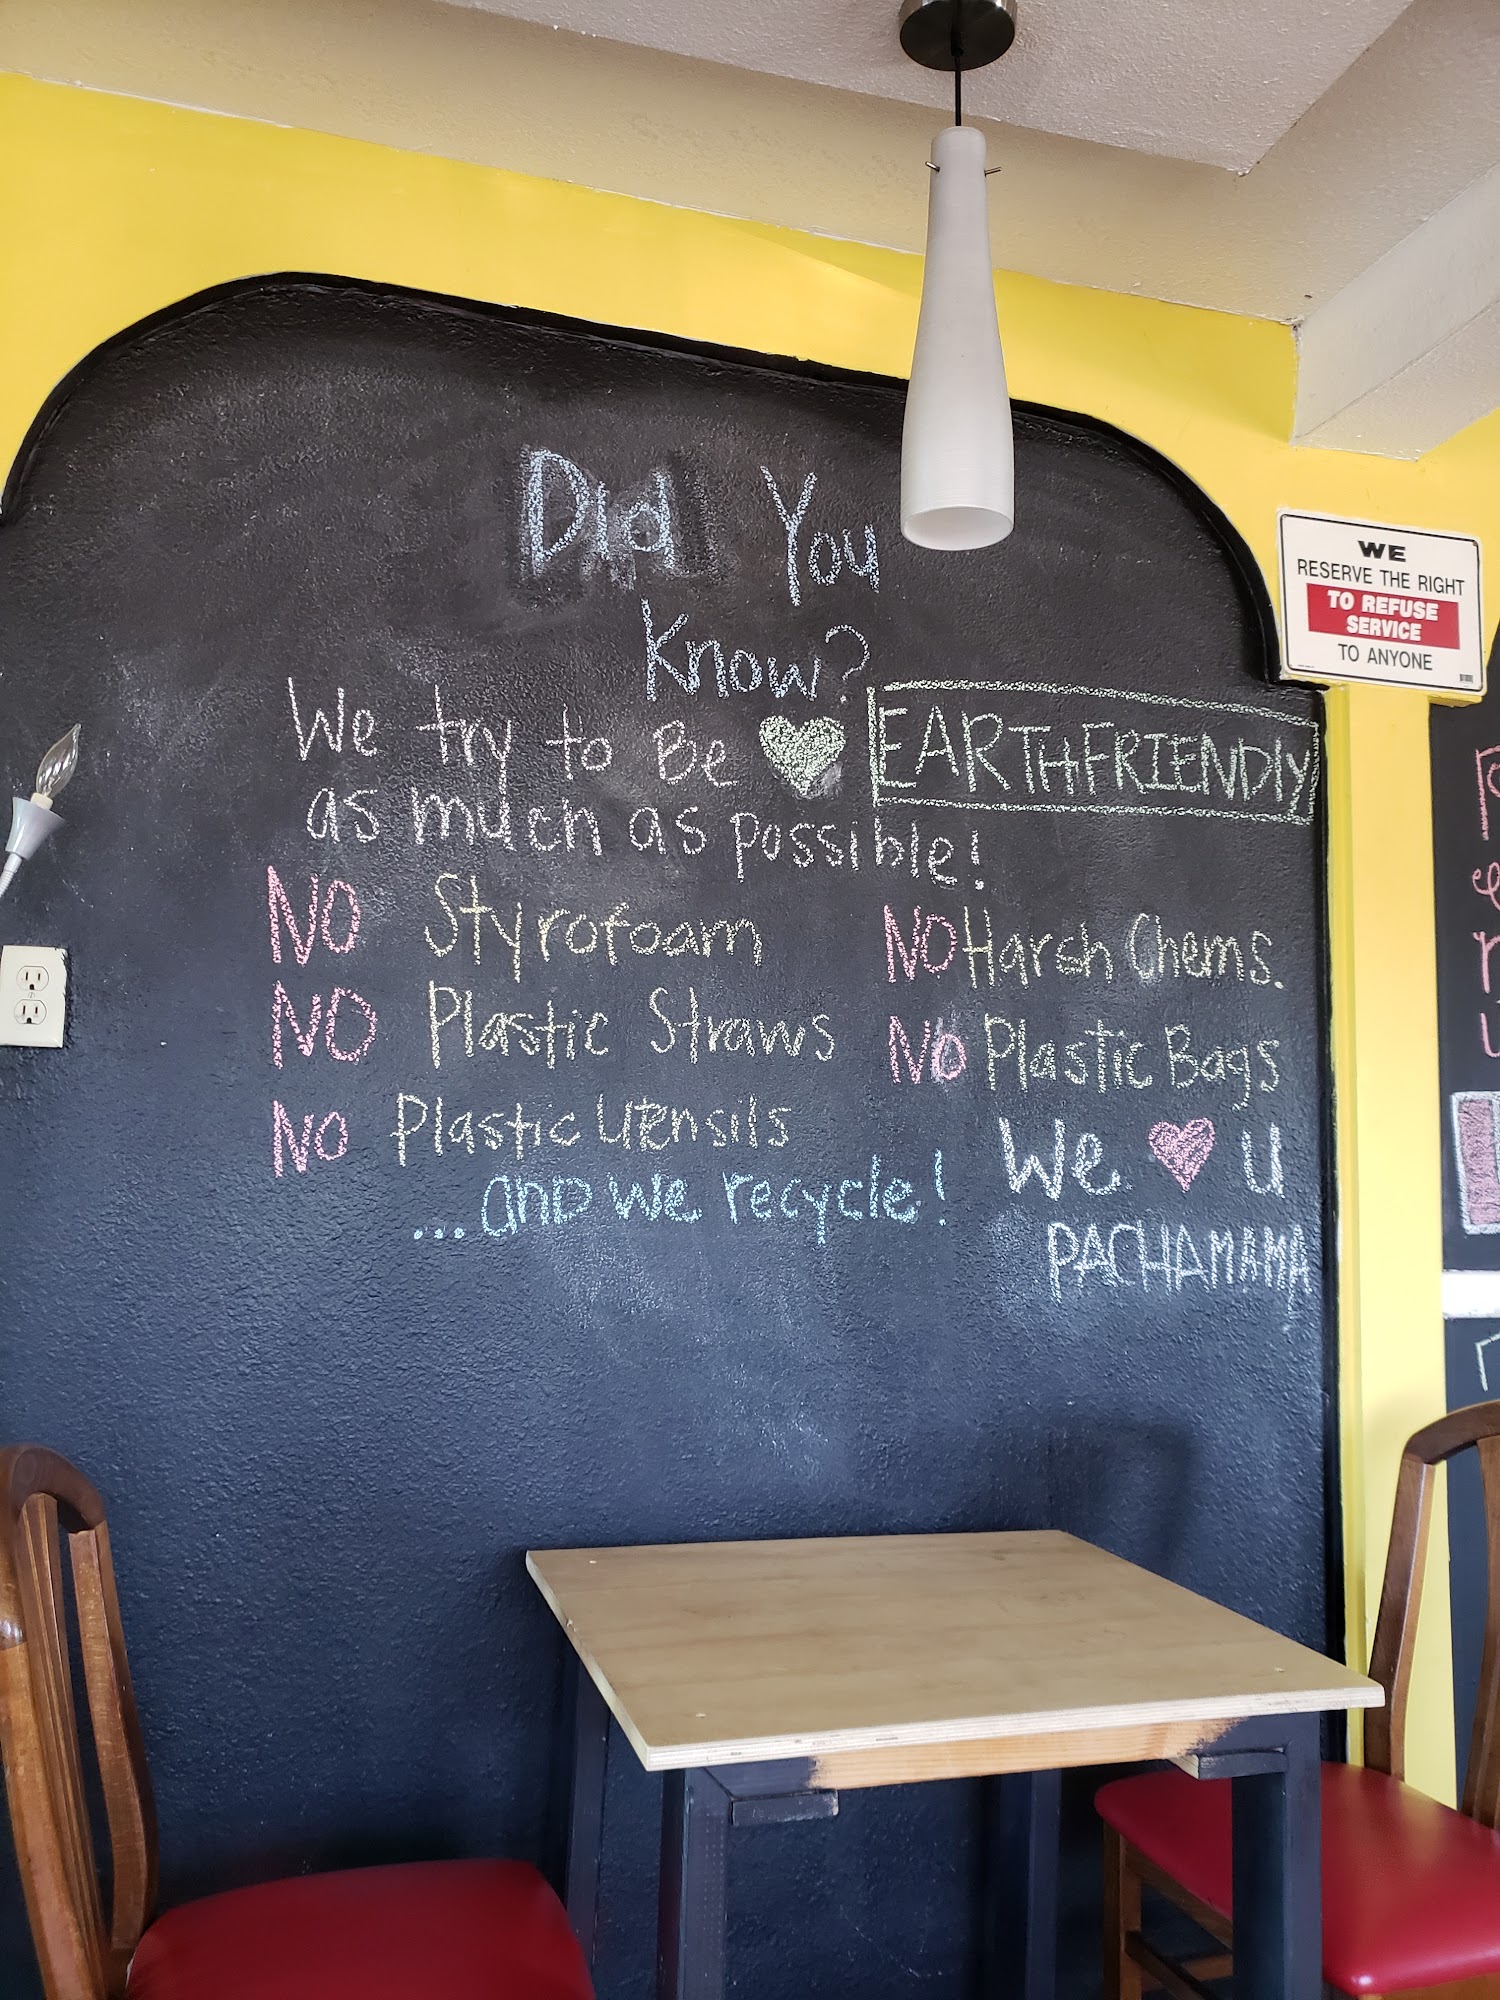 Did You
Know?
We try to Be EARTHFRIENDLY
as much as possible!
NO Styrofoam
NO Plastic Straws
NO Plastic Utensils
...and we recycle!
NO Harsh Chems.
NO Plastic Bags
We ♥ U
PACHAMAMA
WE
RESERVE THE RIGHT
TO REFUSE
SERVICE
TO ANYONE